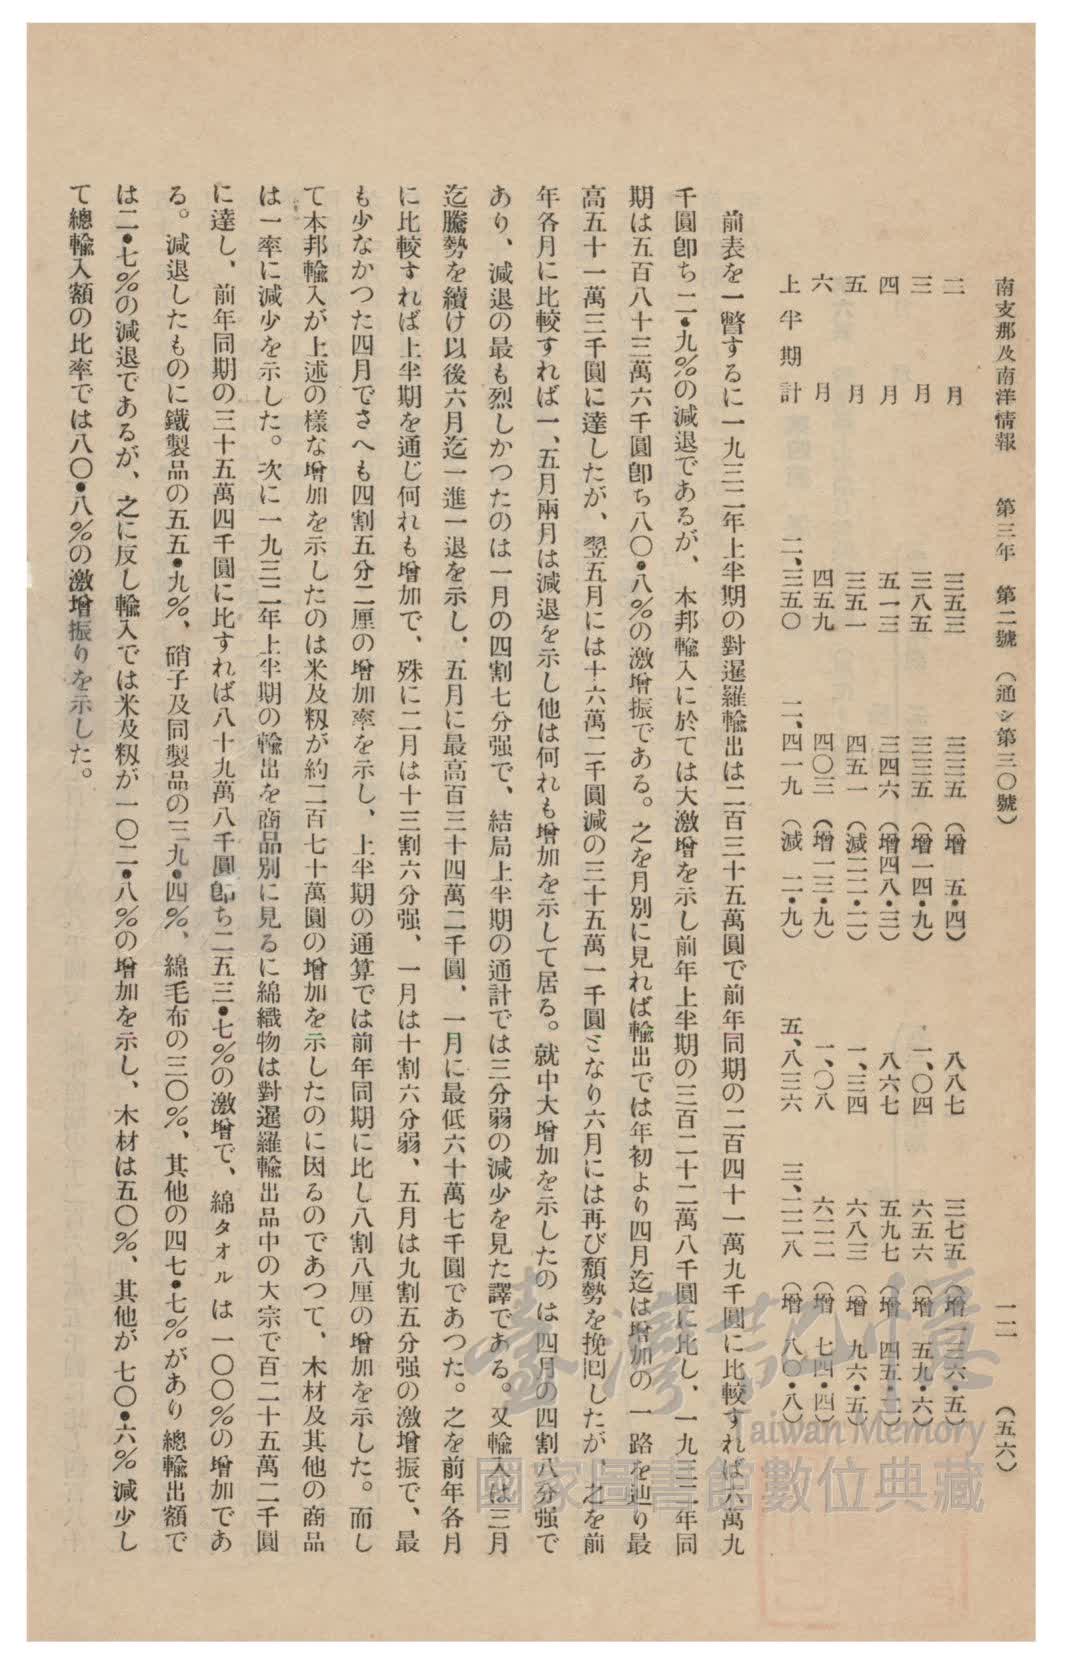 南支那及南洋情報　第三年　第二號（通シ第三〇號）　一二　（五六）
二　月　三五三　三三五（增　五•四）　八八七　三七五（增一三六•五）
三　月　三八五　三三五（增一四•九）　一、〇四　六五六（增　五九•六）
四　月　五一三　三四六（增四八•三）　八六七　五九七（增　四五•二）
五　月　三五一　四五一（減二二•二）　一、三四　六八三（增　九六•五）
六　月　四五九　四〇三（增一三•九）　一、〇八　六二二（增　七四•四）
上半期計　二、三五〇　二、四一九（減　二•九）　五、八三六　三、二二八（增　八〇•八）
前表を一瞥するに一九三二年上半期の對暹羅輸出は二百三十五萬圓で前年同期の二百四十一萬九千圓に比較すれば六萬九
千圓卽ち二•九％の減退であるが、本邦輸入に於ては大激增を示し前年上半期の三百二十二萬八千圓に比し、一九三二年同
期は五百八十三萬六千圓卽ち八〇•八％の激增振である。之を月別に見れば輸出では年初より四月迄は增加の一路を辿り最
高五十一萬三千圓に達したが、翌五月には十六萬二千圓減の三十五萬一千圓となり六月には再び頽勢を挽囘したが、之を前
年各月に比較すれば一、五月兩月は減退を示し他は何れも增加を示して居る。就中大增加を示したのは四月の四割八分强で
あり、減退の最も烈しかつたのは一月の四割七分强で、結局上半期の通計では三分弱の減少を見た譯である。又輸入は三月
迄騰勢を續け以後六月迄一進一退を示し、五月に最高百三十四萬二千圓、一月に最低六十萬七千圓であつた。之を前年各月
に比較すれば上半期を通じ何れも增加で、殊に二月は十三割六分强、一月は十割六分弱、五月は九割五分强の激增振で、最
も少なかつた四月でさへも四割五分二厘の增加率を示し、上半期の通算では前年同期に比し八割八厘の增加を示した。而し
て本邦輸入が上述の樣な增加を示したのは米及籾が約二百七十萬圓の增加を示したのに因るのであつて、木材及其他の商品
は一率に減少を示した。次に一九三二年上半期の輸出を商品別に見るに綿織物は對暹羅輸出品中の大宗で百二十五萬二千圓
に達し、前年同期の三十五萬四千圓に比すれば八十九萬八千圓卽ち二五三•七％の激增で、綿タオルは一〇〇％の增加であ
る。減退したものに鐵製品の五五•九％、硝子及同製品の三九•四％、綿毛布の三〇％、其他の四七•七％があり總輸出額で
は二•七％の減退であるが、之に反し輸入では米及籾が一〇二•八％の增加を示し、木材は五〇％、其他が七〇•六％減少し
て總輸入額の比率では八〇•八％の激增振りを示した。
臺灣記憶
Taiwan Memory
國家圖書館數位典藏